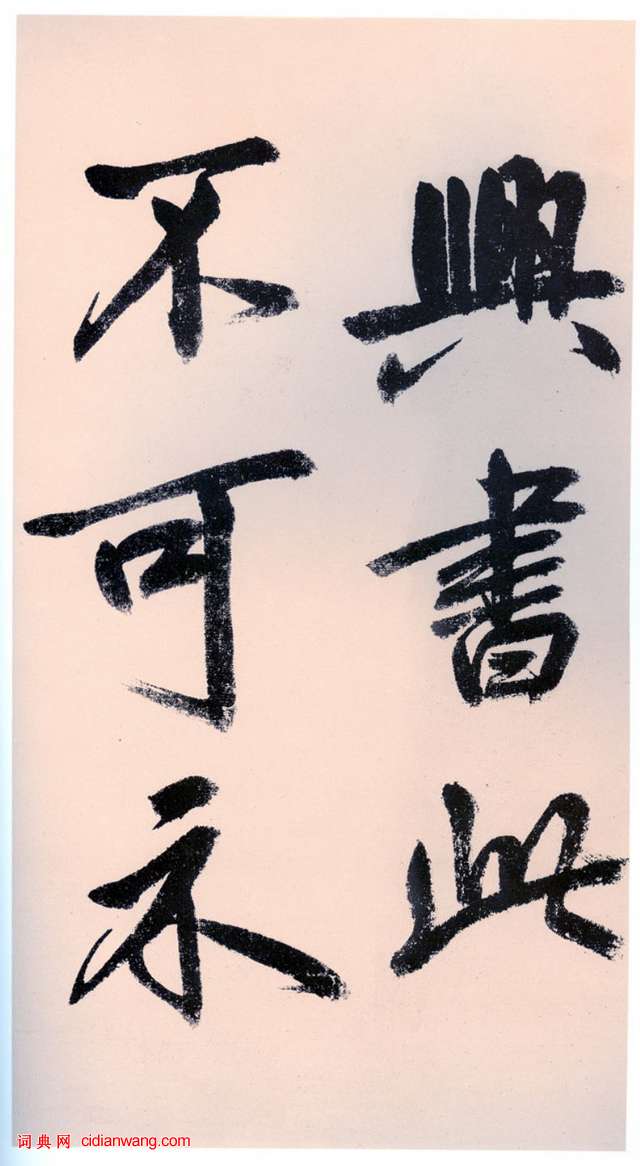 興書此
不可示
词典网 cidianwang.com